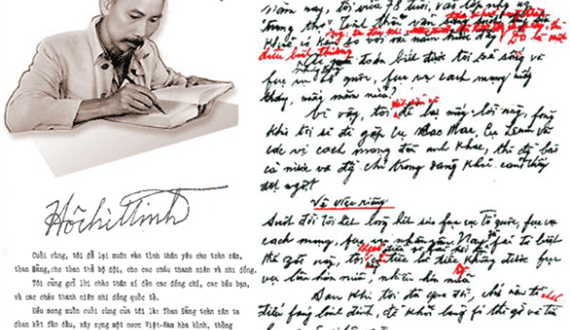 Hồ Chí Minh
Cuối cùng, tôi để lại muôn vàn tình thân yêu cho toàn dân,
toàn Đảng,cho toàn thể bộ đội, cho các cháu thanh niên và nhi đồng.
Tôi cũng gửi lời chào thân ái đến các đồng chí, các bầu bạn,
và các cháu thanh niên nhi đồng quốc tế.
Điều mong muốn cuối cùng của tôi là: Toàn Đảng toàn dân ta
đoàn kết phấn đấu, xây dựng một nước Việt-Nam hòa bình, thống
năm nay, tôi vừa 78 tuổi, vào lớp những
"trung thọ". Tinh thần vẫn
khỏe, có kém so với vài năm trước đây
điều bình thường
đoán biết được tôi sống và
fục vụ tổ quốc, fục vụ cách mạng mấy
tháng, mấy năm nữa?
Vì vậy, tôi để lại mấy lời này, fòng
khi tôi sẽ đi gặp cụ Các Mác, cụ Lênin và
các vị cách mạng đàn anh khác, thì đồng bào
cả nước và đồng chí trong đảng khỏi cảm thấy
đột ngột
Về việc riêng
Suốt đời tôi hết lòng hết sức fục vụ tổ quốc, fục vụ
cách mạng, fục vụ nhân dân. Nay
thế giới này, tôi không có điều gì fải hối hận
vụ lâu hơn nữa, nhiều hơn nữa
Sau khi tôi đã qua đời, chớ nên tổ chức
điếu fúng linh đình, để khỏi lãng fí thì giờ và